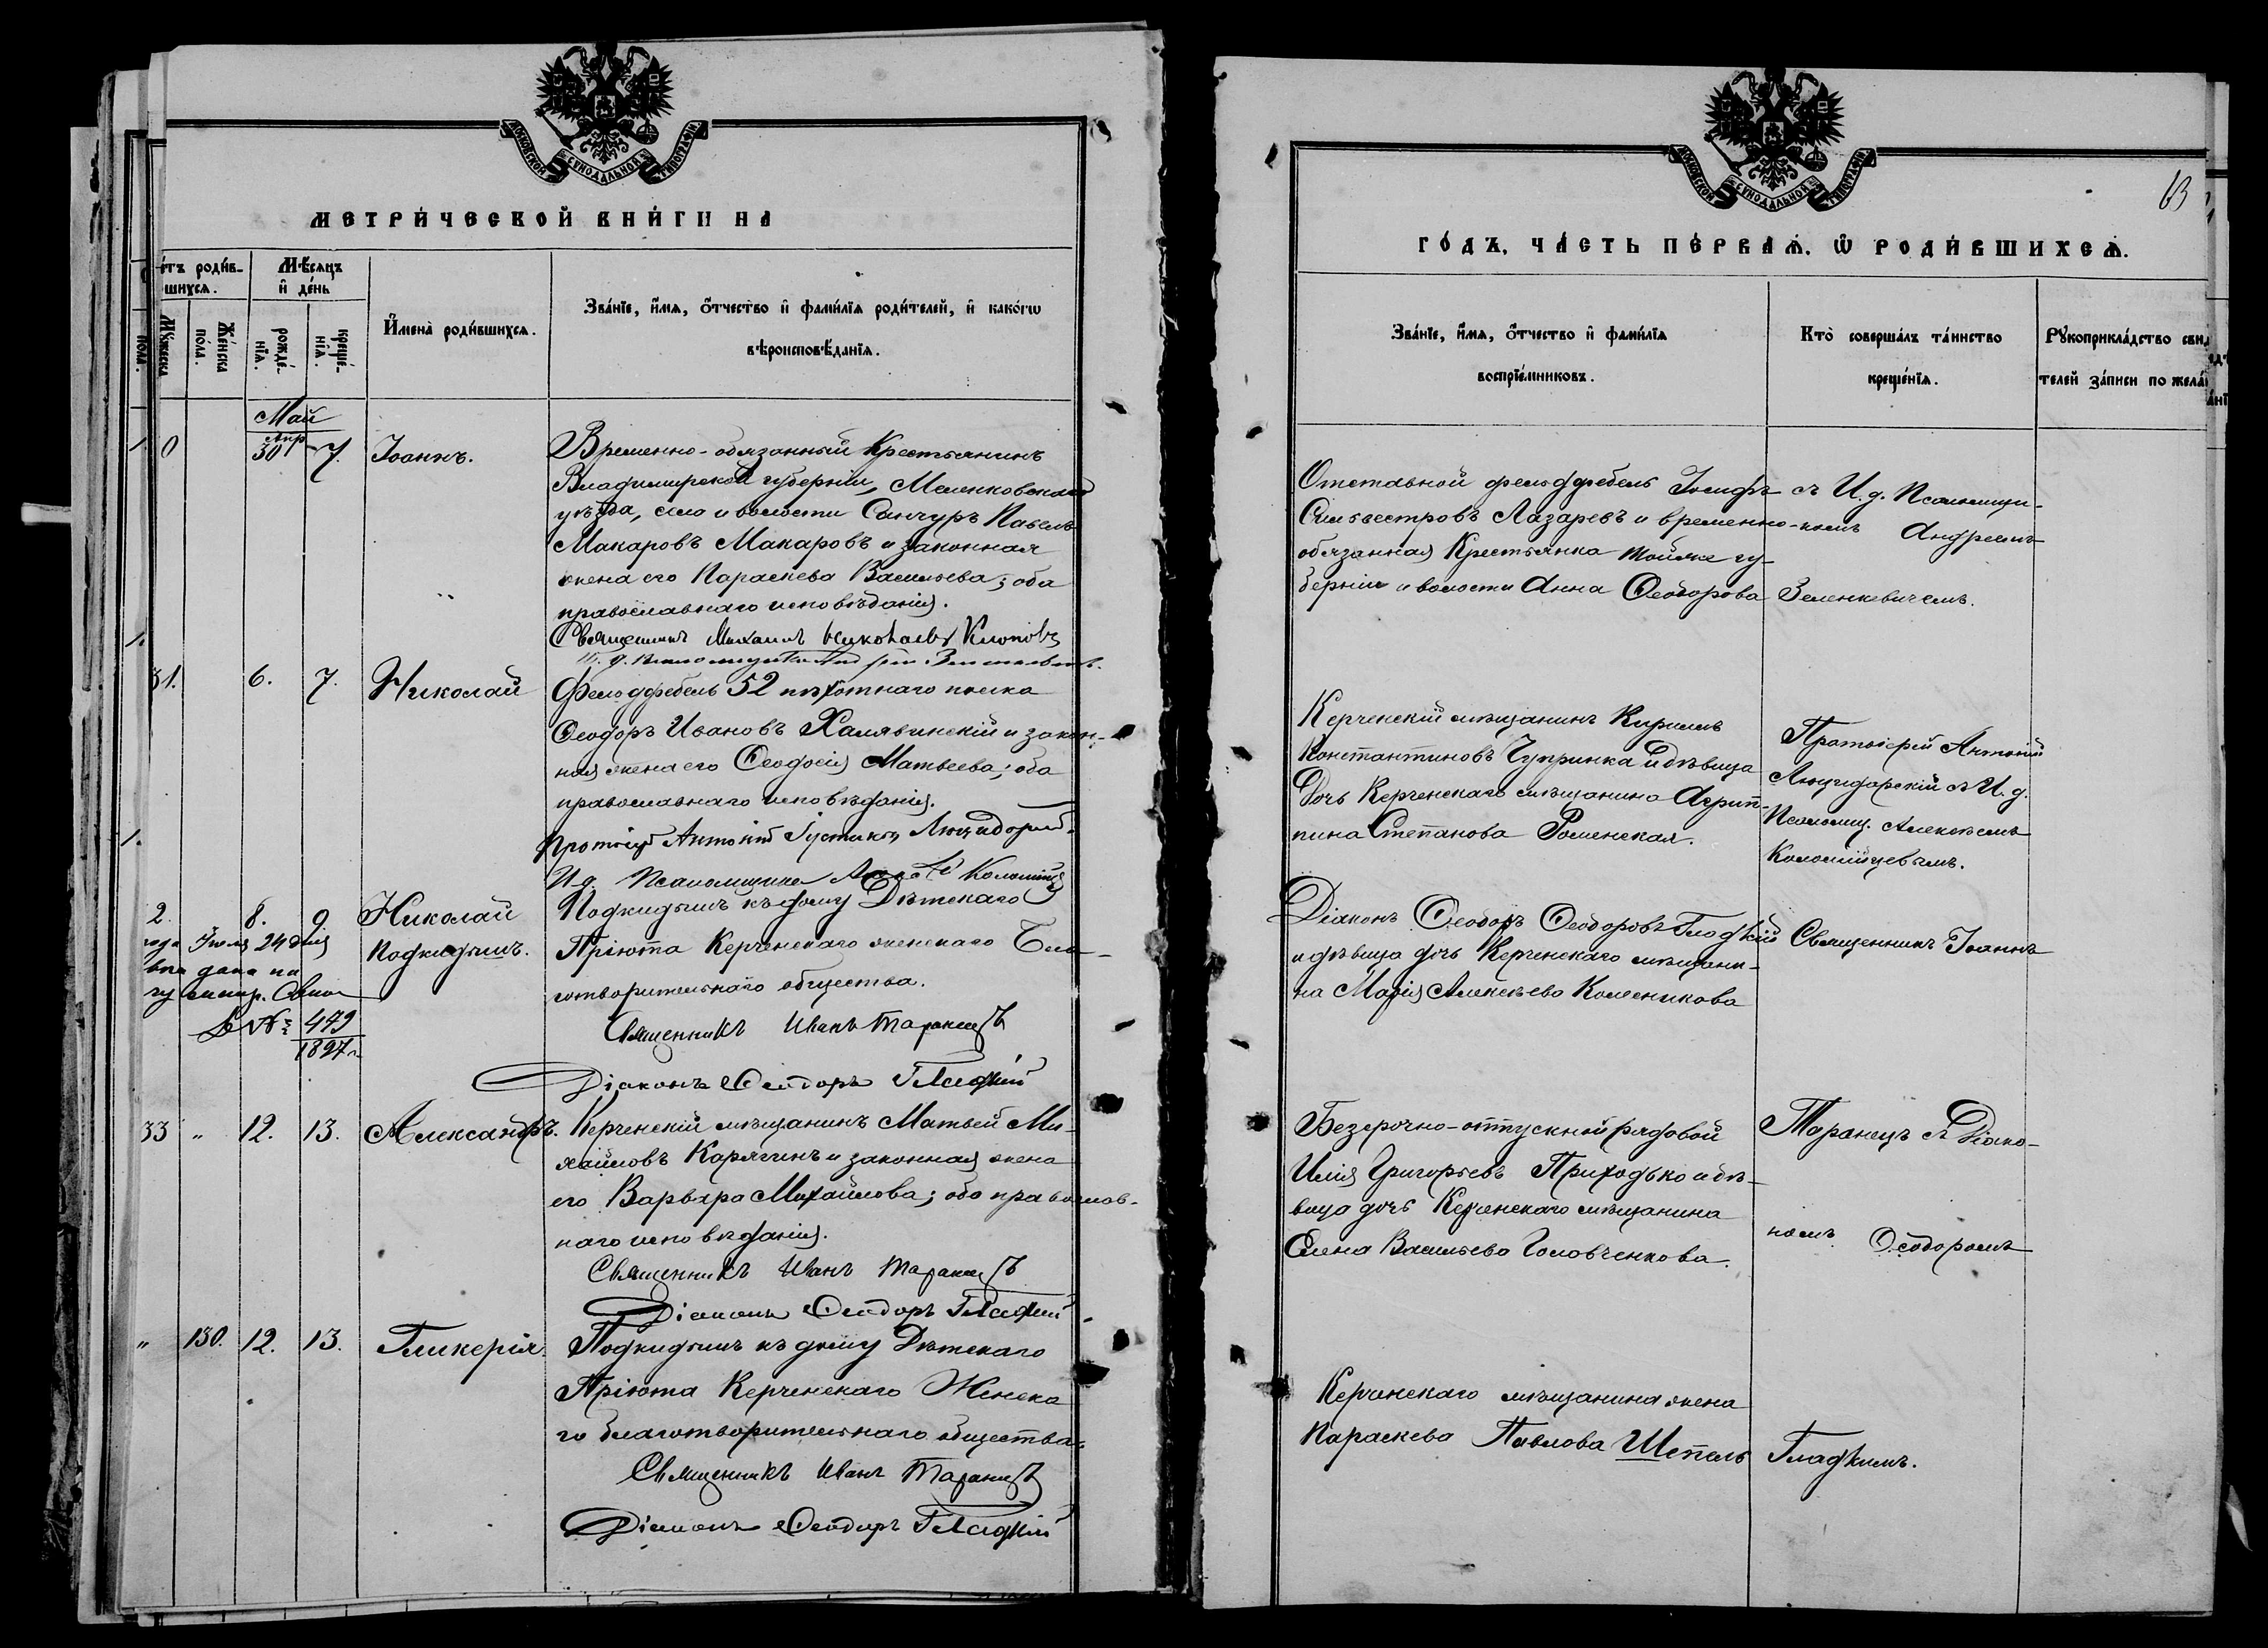 МОСКОВСКОЙ СѴНОДАЛЬНОЙ ТИПОГРАФІИ
МЕТРИ́ЧЕСКОЙ КНИ́ГИ НА
е́тъ роди́в-
шихсѧ.
Мѣ́сяцъ
и҆ де́нь
Мꙋ́жеска
Же́нска
по́ла.
рожде́-
нїѧ.
креще́-
нїѧ.
И҆мена̀ роди́вшихсѧ.
Зва́нїе, и҆́мѧ, ѻ҆́тчество и҆ фами́лїѧ роди́телей, и҆ како́гѡ
вѣроисповѣ́данїѧ.
Май
Апр
0
30
7.
Іоаннъ.
Временно-обязанный Крестьянинъ
Владимирской губерніи, Меленковскаго
уѣзда, села и волости Санчуръ Павелъ
Макаровъ Макаровъ и законная
жена его Параскева Васильева; оба
православнаго исповѣданія.
Священникъ Михаилъ Николаевъ
31.
6.
7.
Николай
Фельдфебель 52 пѣхотнаго полка
Ѳеодоръ Ивановъ Халявинскій и закон-
ная жена его Ѳеодосія Матвеева; оба
православнаго исповѣданія.
Протоіерей Антоній Люцидарскій
И. д. Псаломщика Алексѣй Коломійцевъ
2.
8.
9
Николай
подкидышъ.
года Іюля 24 дня
дана
за № 479
1897 г.
Подкидышъ къ дому Дѣтскаго
Пріюта Керченскаго женскаго Бла-
готворительнаго общества.
Священникъ Иванъ Таранецъ
Діаконъ Ѳеодоръ Гладкій
33
"
12.
13.
Александръ.
Керченскій мѣщанинъ Матвей Ми-
хайловъ Карягинъ и законная жена
его Варвара Михайлова; оба православ-
наго исповѣданія.
Священникъ Иванъ Таранецъ
Діаконъ Ѳеодоръ Гладкій
"
130.
12.
13.
Гликерія.
Подкидышъ къ дому Дѣтскаго
Пріюта Керченскаго Женска
го благотворительнаго общества.
Священникъ Иванъ Таранецъ
Діаконъ Ѳеодоръ Гладкій
МОСКОВСКОЙ СѴНОДАЛЬНОЙ ТИПОГРАФІИ
ГО́ДЪ, ЧА́СТЬ ПЕ́РВАѦ, Ѡ҆ РОДИ́ВШИХСѦ.
Зва́нїе, и҆́мѧ, ѻ҆́тчество и҆ фами́лїѧ
воспрїе́мниковъ.
Кто̀ соверша́лъ та́инство
креще́нїѧ.
Рꙋкоприкла́дство свид
телей за́писи по жела́
Отставной фельдфебель Іосифъ
Сильвестровъ Лазаревъ и временно-
обязанная Крестьянка тойже гу-
берніи и волости Анна Ѳеодорова
съ И. д. Псаломщи-
комъ Андреемъ
Зеленкевичемъ.
Керченскій мѣщанинъ Кириллъ
Константиновъ Чупринка и дѣвица
дочь Керченскаго мѣщанина Агрип-
пина Степанова Роменская.
Протоіерей Антоній
Люцидарскій съ И. д.
Псаломщ. Алексѣемъ
Коломійцевымъ.
Діаконъ Ѳеодоръ Ѳеодоровъ Гладкій
и дѣвица дочь Керченскаго мѣщани-
на Марія Алексѣева Колесникова
Священникъ Іоаннъ
Безсрочно-отпускной рядовой
Илія Григорьевъ Приходько и дѣ-
вица дочь Керченскаго мѣщанина
Елена Васильева Головченкова.
Таранецъ съ Діако-
номъ Ѳеодоромъ
Керченскаго мѣщанина жена
Параскева Павлова Шепель
Гладкимъ.